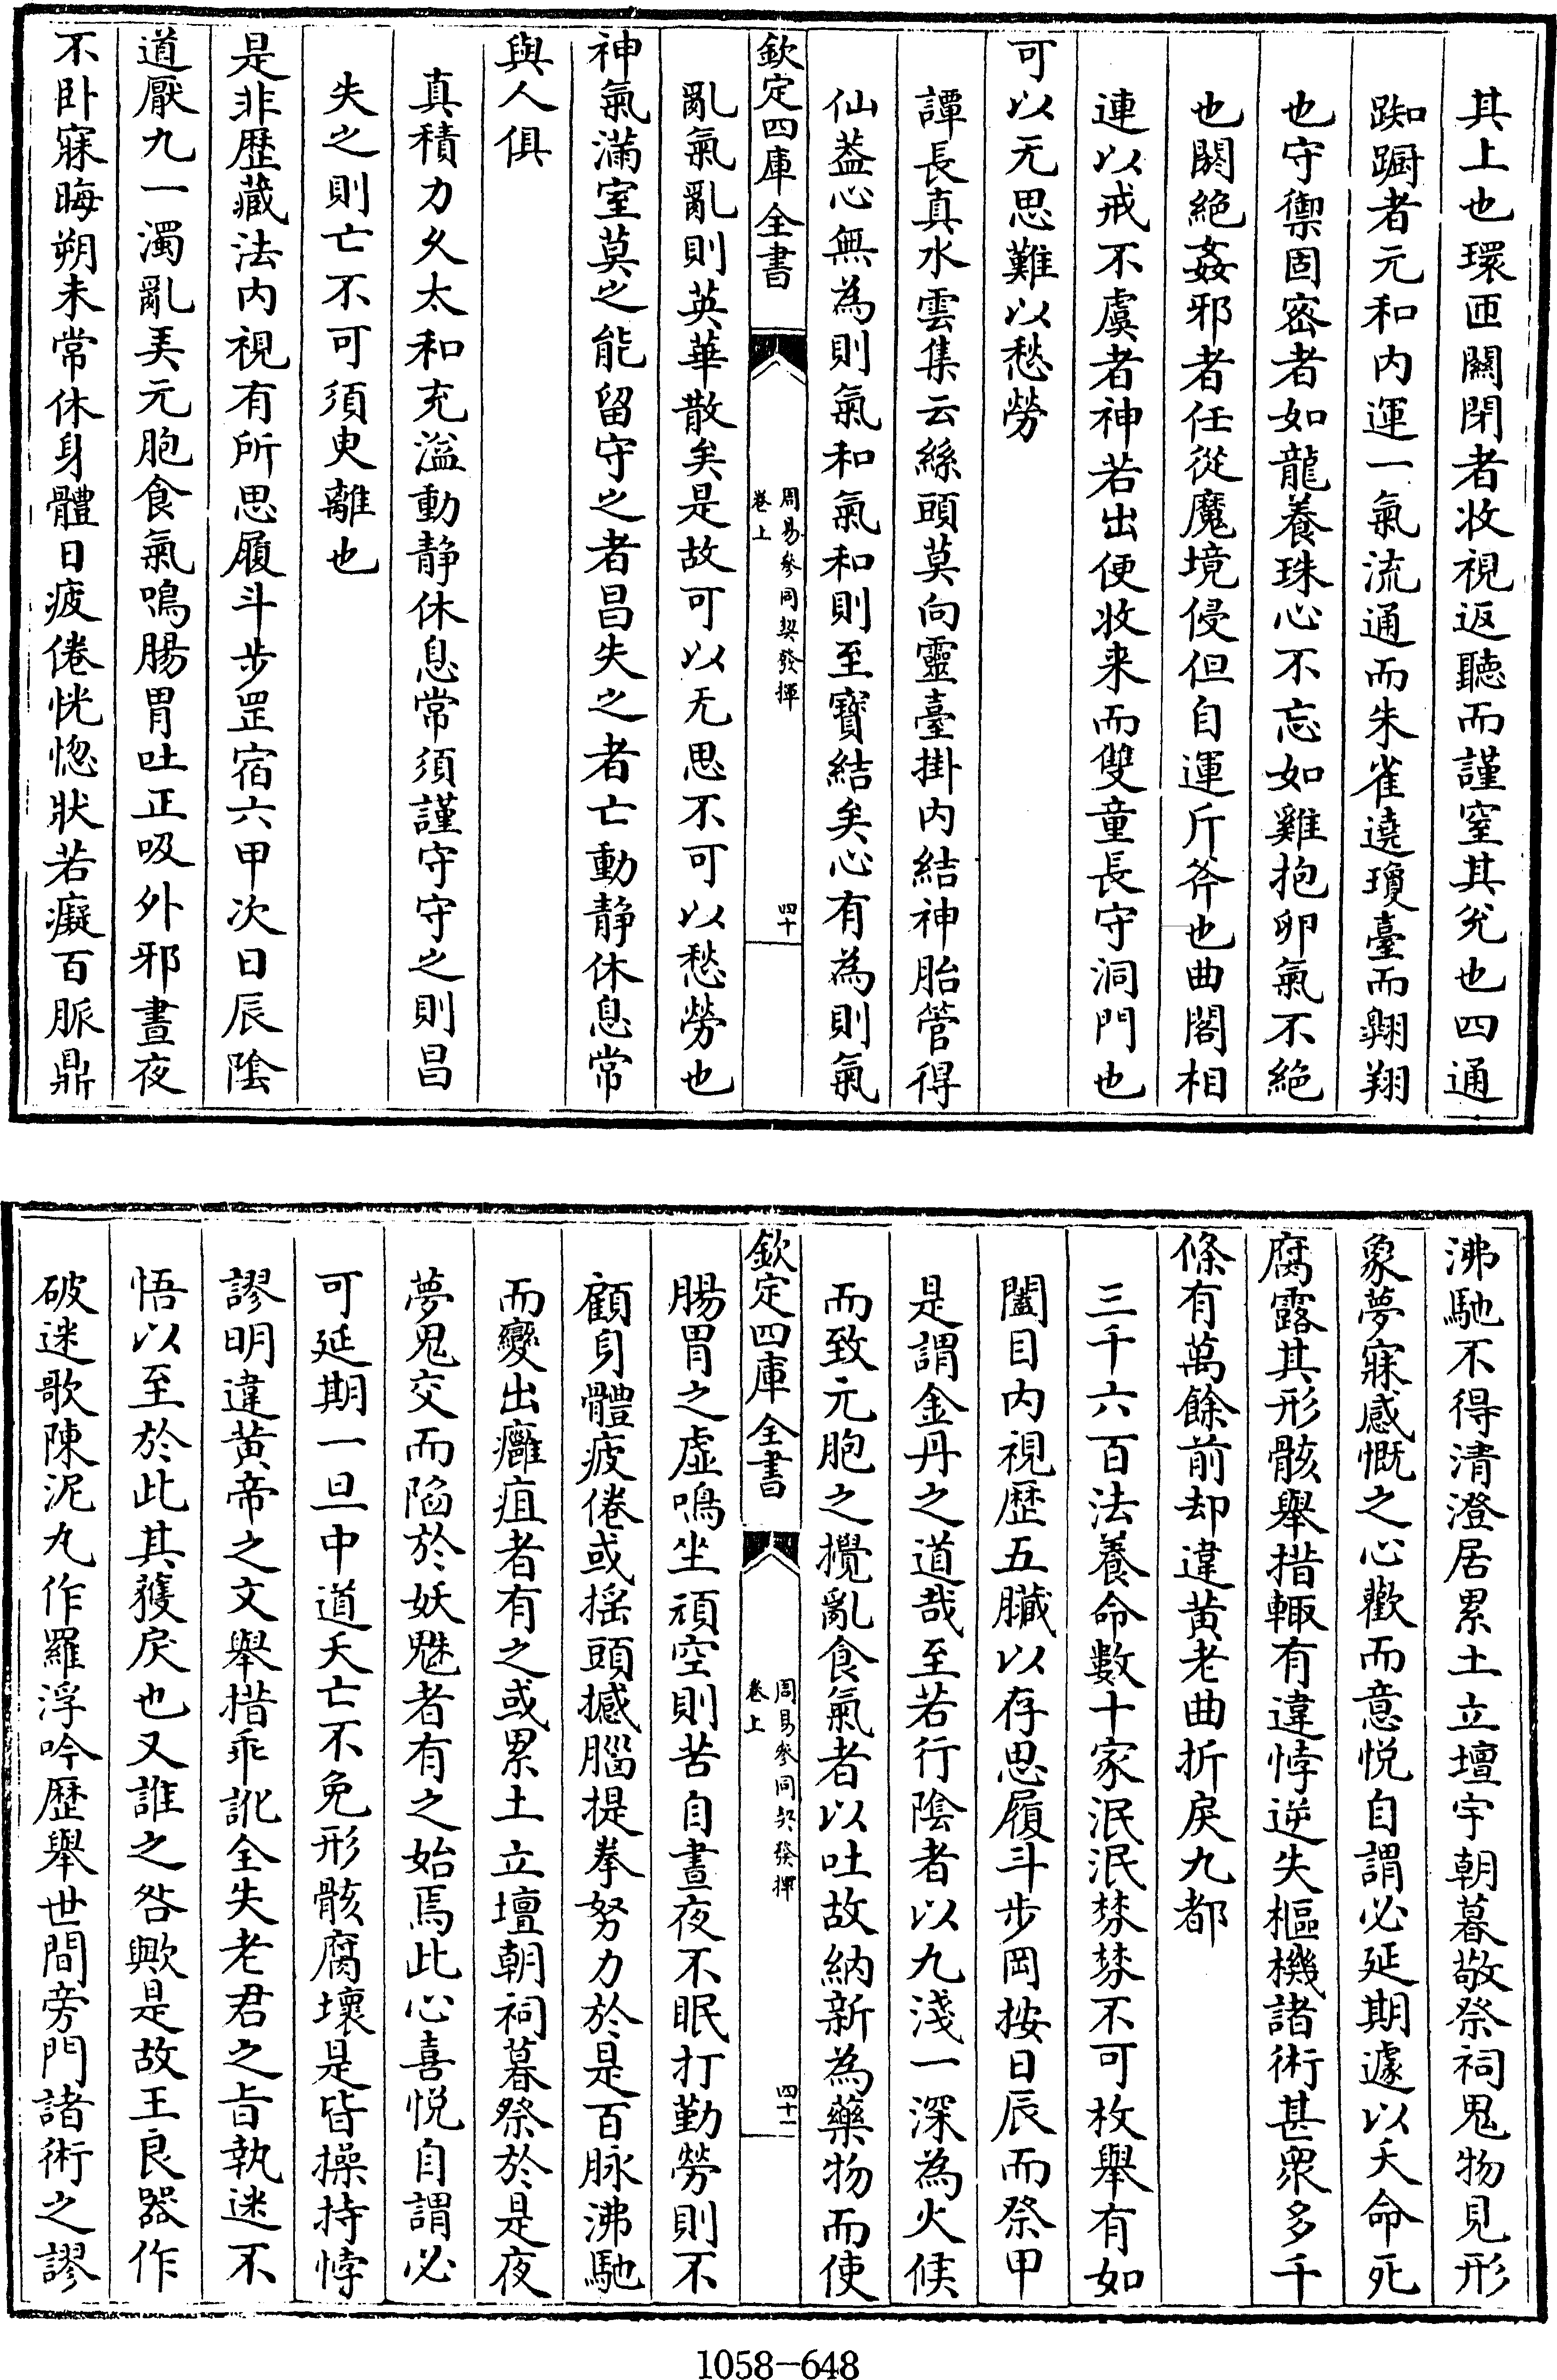 其上也環匝關閉者收視返聽而謹窒其兊也四通
踟躕者元和内運一氣流通而朱雀遶瓊臺而翺翔
也守禦固密者如龍養珠心不忘如雞抱卵氣不絶
也閼絶姦邪者任從魔境侵但自運斤斧也曲閣相
連以戒不虞者神若出便收来而雙童長守洞門也
可以无思難以愁勞
譚長真水雲集云絲頭莫向靈臺掛内結神胎管得
仙葢心無為則氣和氣和則至寳結矣心有為則氣
欽定四庫全書
周易參同契發揮
卷上
四十
亂氣亂則英華散矣是故可以无思不可以愁勞也
神氣滿室莫之能留守之者昌失之者亡動静休息常
與人俱
真積力乆太和充溢動静休息常須謹守守之則昌
失之則亡不可須臾離也
是非歴藏法内視有所思履斗步罡宿六甲次日辰隂
道厭九一濁亂㺯元胞食氣鳴腸胃吐正吸外邪晝夜
不卧寐晦朔未常休身體日疲倦恍惚狀若癡百脈鼎
沸馳不得清澄居累土立壇宇朝暮敬祭祠鬼物見形
象夢寐感慨之心歡而意悦自謂必延期遽以夭命死
腐露其形骸舉措輙有違悖逆失樞機諸術甚衆多千
條有萬餘前却違黄老曲折戾九都
三千六百法養命數十家泯泯棼棼不可枚舉有如
闔目内視歴五臓以存思履斗步岡按日辰而祭甲
是謂金丹之道哉至若行隂者以九淺一深為火候
而致元胞之攪亂食氣者以吐故納新為藥物而使
欽定四庫全書
周易參同契發揮
卷上
四十一
腸胃之虚鳴坐頑空則苦自晝夜不眠打勤勞則不
顧身體疲倦或揺頭撼腦提拳努力於是百脉沸馳
而變出癰疽者有之或累土立壇朝祠暮祭於是夜
夢鬼交而陷於妖魅者有之始焉此心喜悦自謂必
可延期一旦中道夭亡不免形骸腐壞是皆操持悖
謬明違黄帝之文舉措乖訛全失老君之旨執迷不
悟以至於此其獲戾也又誰之咎歟是故王良器作
破迷歌陳泥丸作羅浮吟歴舉世間旁門諸術之謬
1058-648